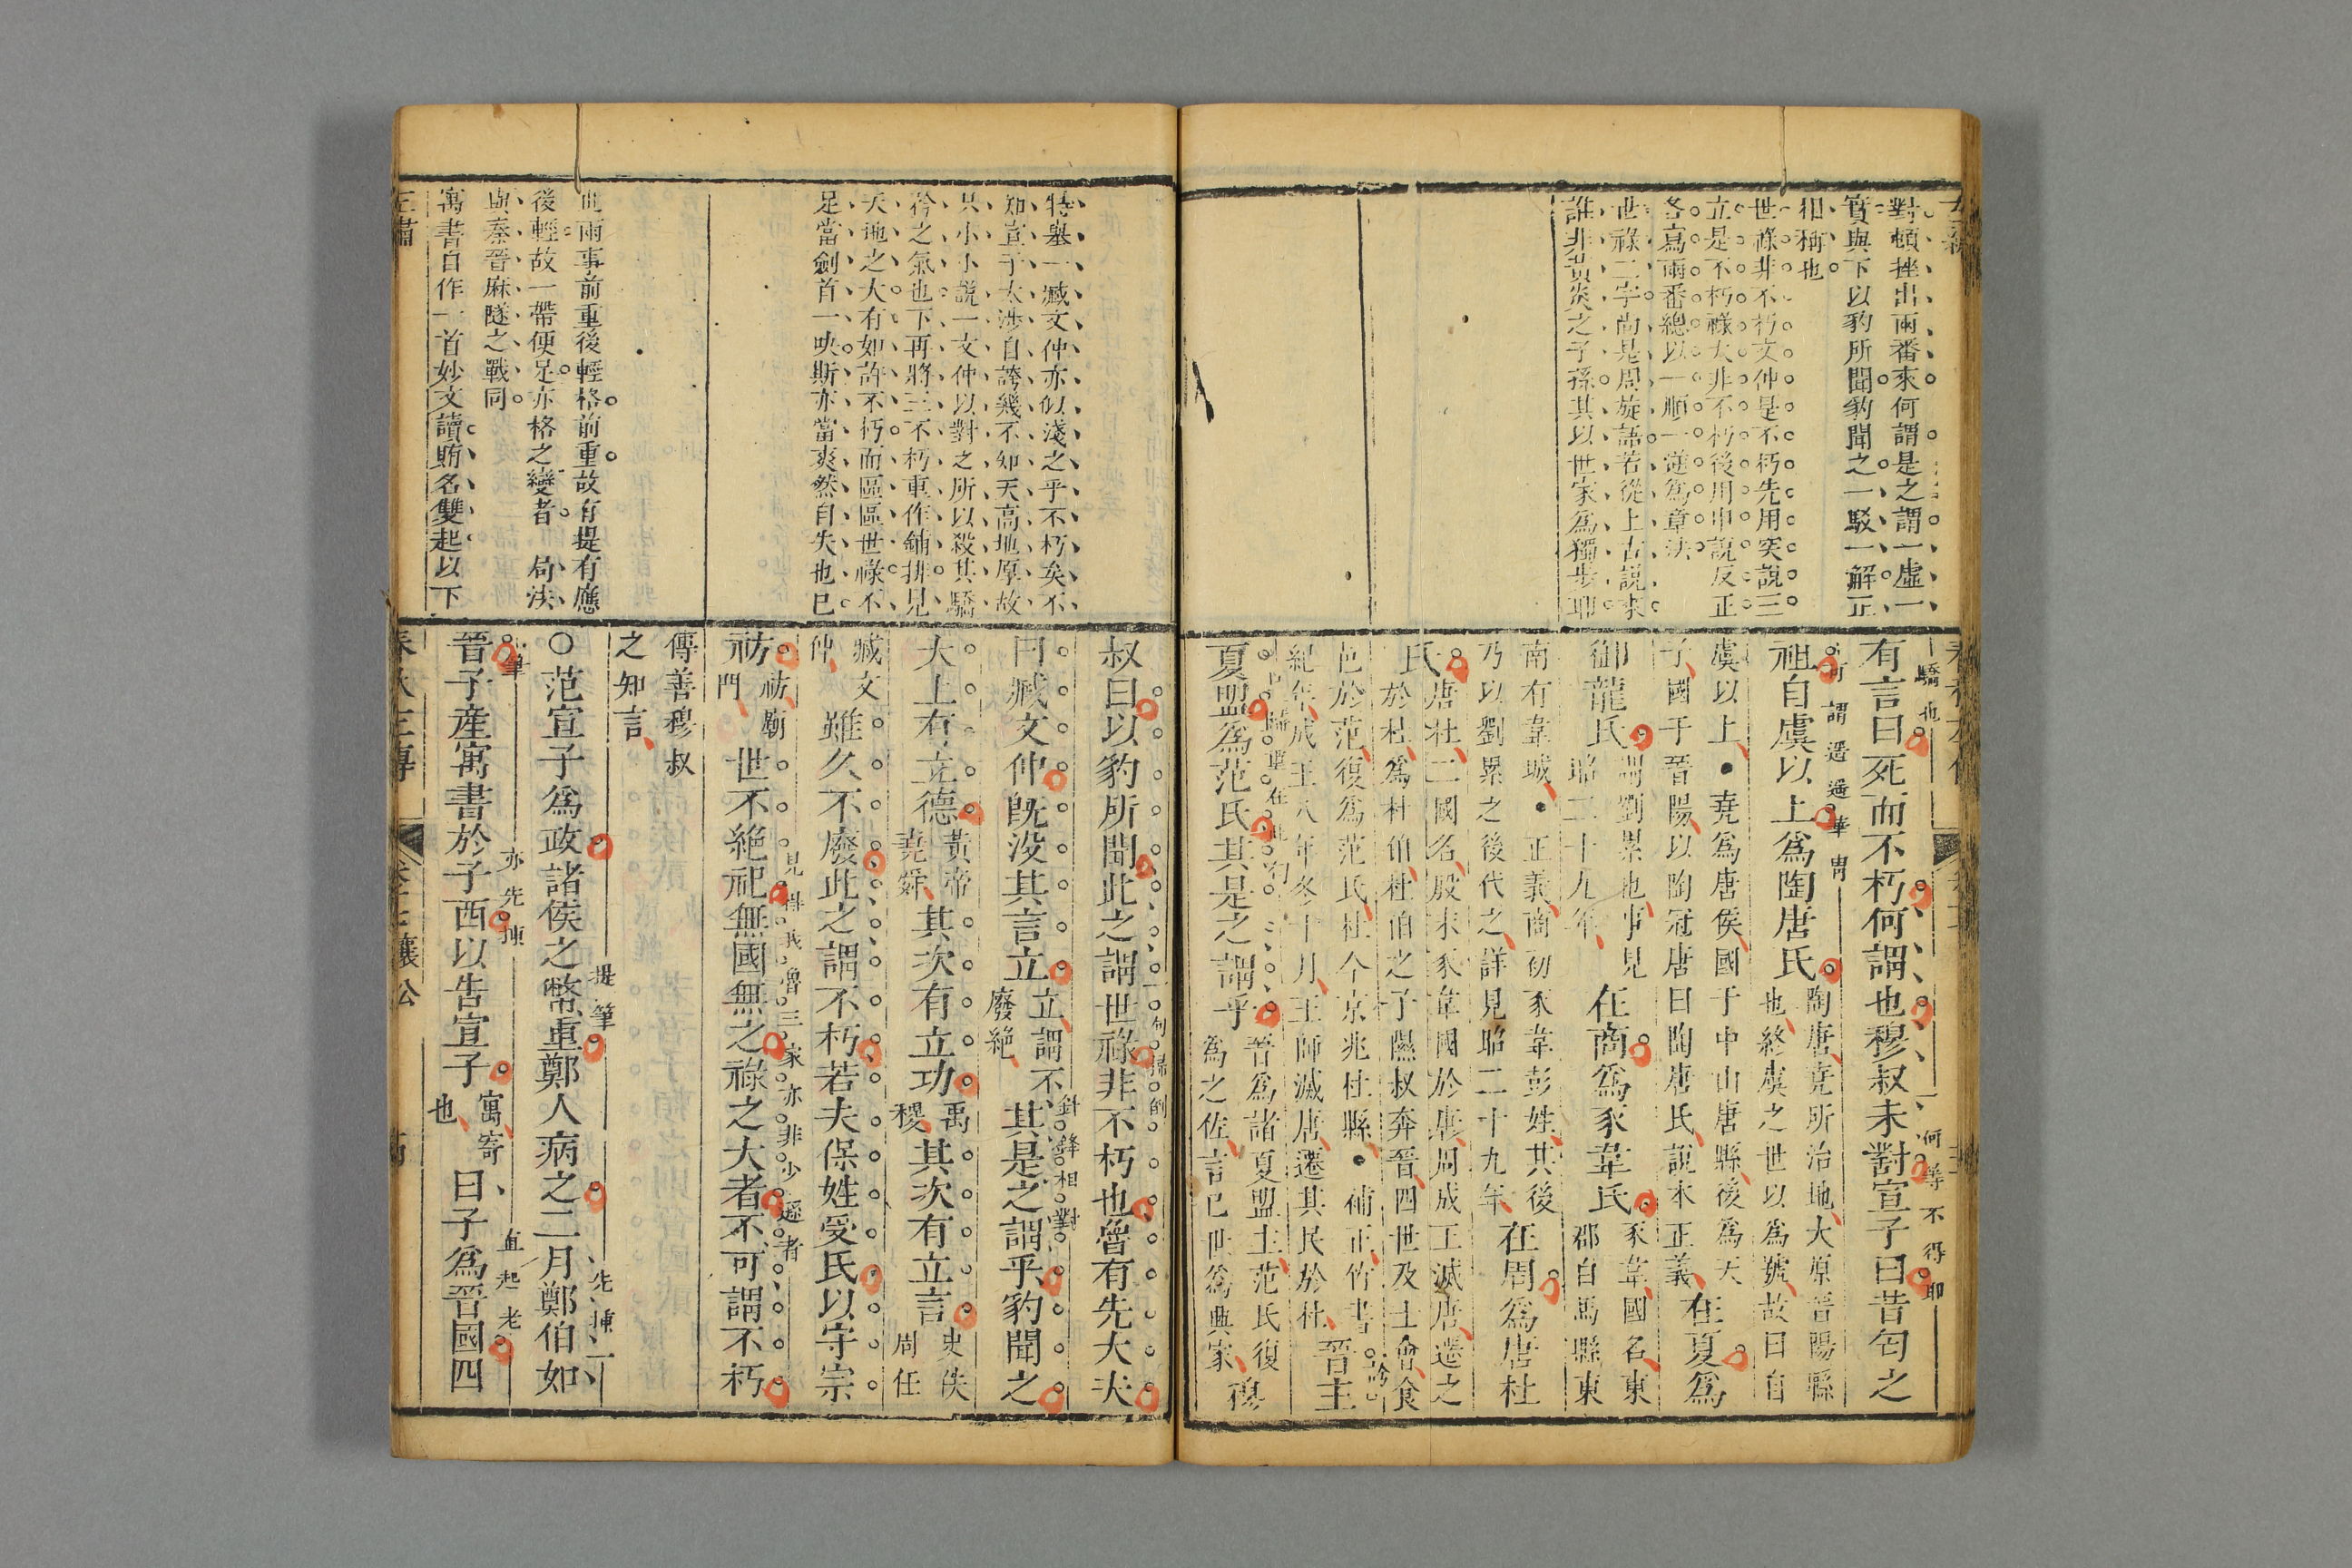 對頓挫出兩番來何謂是之謂一虛一
實與下以豹所聞豹聞之一駁一解正
相稱也
世祿非不朽文仲是不朽先用突說三
立是不朽祿大非不朽後用申說反正
各寫兩番總以一順一逆為章法
世祿二字尚是周旋語若從上古說來
誰非黃炎之子孫其以世家為獨步耶
驕也
有言曰死而不朽何謂也穆叔未對宣子曰昔匄之
何等不得即
何謂遥遥華冑
祖自虞以上為陶唐氏
陶唐堯所治地大原晉陽縣
也終虞之世以為號故曰自
虞以上●堯為唐侯國于中山唐縣後為天
子國于晉陽以陶冠唐曰陶唐氏說本正義
在夏為
御龍氏
謂劉累也事見
昭二十九年
在商為豕韋氏
豕韋國名東
郡白馬縣東
南有韋城●正義商初豕韋彭姓其後
乃以劉累之後代之詳見昭二十九年
在周為唐杜
氏
唐杜二國名殷末豕韋國於唐周成王滅唐遷之
於杜為杜伯杜伯之子隰叔奔晉四世及士會食
邑於范復為范氏杜今京兆杜縣●補正竹書
紀年成王八年冬十月王師滅唐遷其民於杜
晉主
夏盟為范氏其是之謂乎
晉為諸夏盟主范氏復
為之佐言已世為興家
穆
特舉一臧文仲亦似淺之乎不朽矣不
知宣子太涉自誇幾不知天高地厚故
只小小說一文仲以對之所以殺其驕
矜之氣也下再將三不朽重作鋪排見
天地之大有如許不朽而區區世祿不
足當劍首一吷斯亦當爽然自失也已
此兩事前重後輕格前重故有提有應
後輕故一帶便足亦格之變者 句法
與秦晉麻隧之戰同
寓書自作一首妙文讀賄名雙起以下
叔曰以豹所聞此之謂世祿非不朽也魯有先大夫
一句掃倒
曰臧文仲既沒其言立
立謂不
廢絶
其是之謂乎豹聞之
針鋒相對
大上有立德
黃帝
堯舜
其次有立功
禹
稷
其次有立言
史佚
周任
臧文
仲
雖久不廢此之謂不朽若夫保姓受氏以守宗
祊
祊廟
門
世不絕祀無國無之祿之大者不可謂不朽
見得我魯三家亦非少遜者
傳善穆叔
之知言
○范宣子為政諸侯之幣重鄭人病之二月鄭伯如
提筆
先揀一
筆
晉子產寓書於子西以告宣子
寓寄
也
曰子為晉國四
亦先揀
直起老